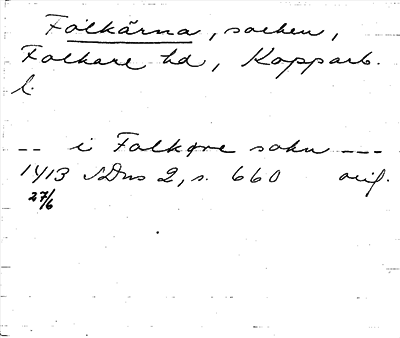 Folkärna, socken,
Folkare hd, Kopparb.
l.
-- i Folkøre sokn ---
1413 SDns 2, s. 660 orig.
27/6